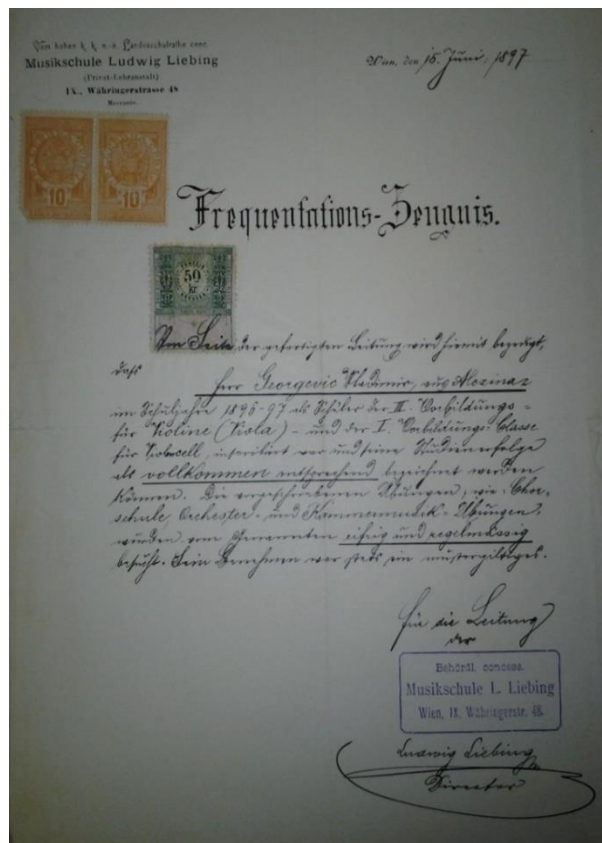 Vom hohen k. k. n.-ö. Landesschulrathe conc.
Musikschule Ludwig Liebing
(Privat-Lehranstalt)
IX., Währingerstrasse 48
Mezzanin.
Wien, den 15. Juni, 1897
10 10
Frequentations-Zeugnis.
50
kr
Von Seite der gefertigten Leitung wird hiemit bezeugt,
dass
Herr Georgević Vladimir, aus
im Schuljahre 1896-97 als Schüler der III. Vorbildungs-
für Violine (Viola) - und der I. Vorbildungs-Classe
für Violoncell, inscribirt war und seine Studienerfolge
als vollkommen entsprechend bezeichnet werden
können. Die vorgeschriebenen Übungen, wie: Chor-
schule Orchester- und Kammermusik-Übungen,
wurden vom Genannten eifrig und regelmässig
besucht. Sein Benehmen war stets ein mustergiltiges.
Für die Leitung
der
Behördl. concess.
Musikschule L. Liebing
Wien, IX. Währingerstr. 48.
Ludwig Liebing
Director